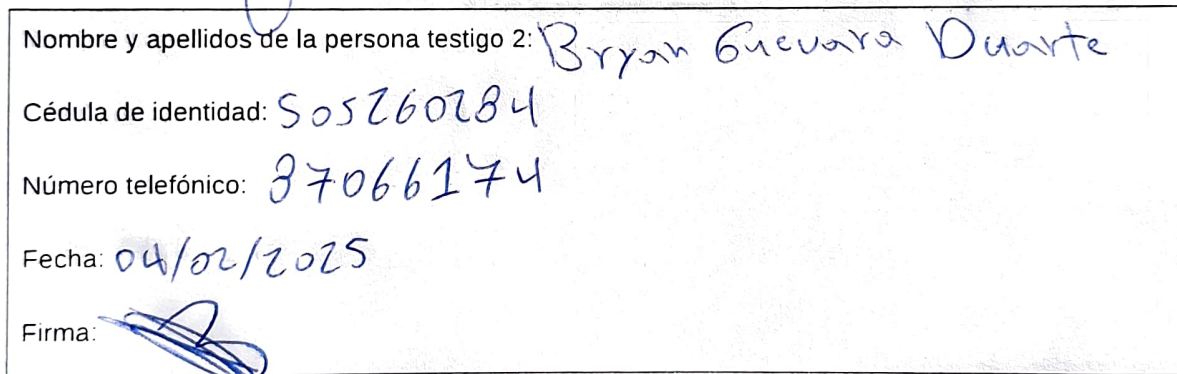 Nombre y apellidos de la persona testigo 2: Bryan Guevara Duarte
Cédula de identidad: 505260284
Número telefónico: 87066174
Fecha: 04/02/2025
Firma: